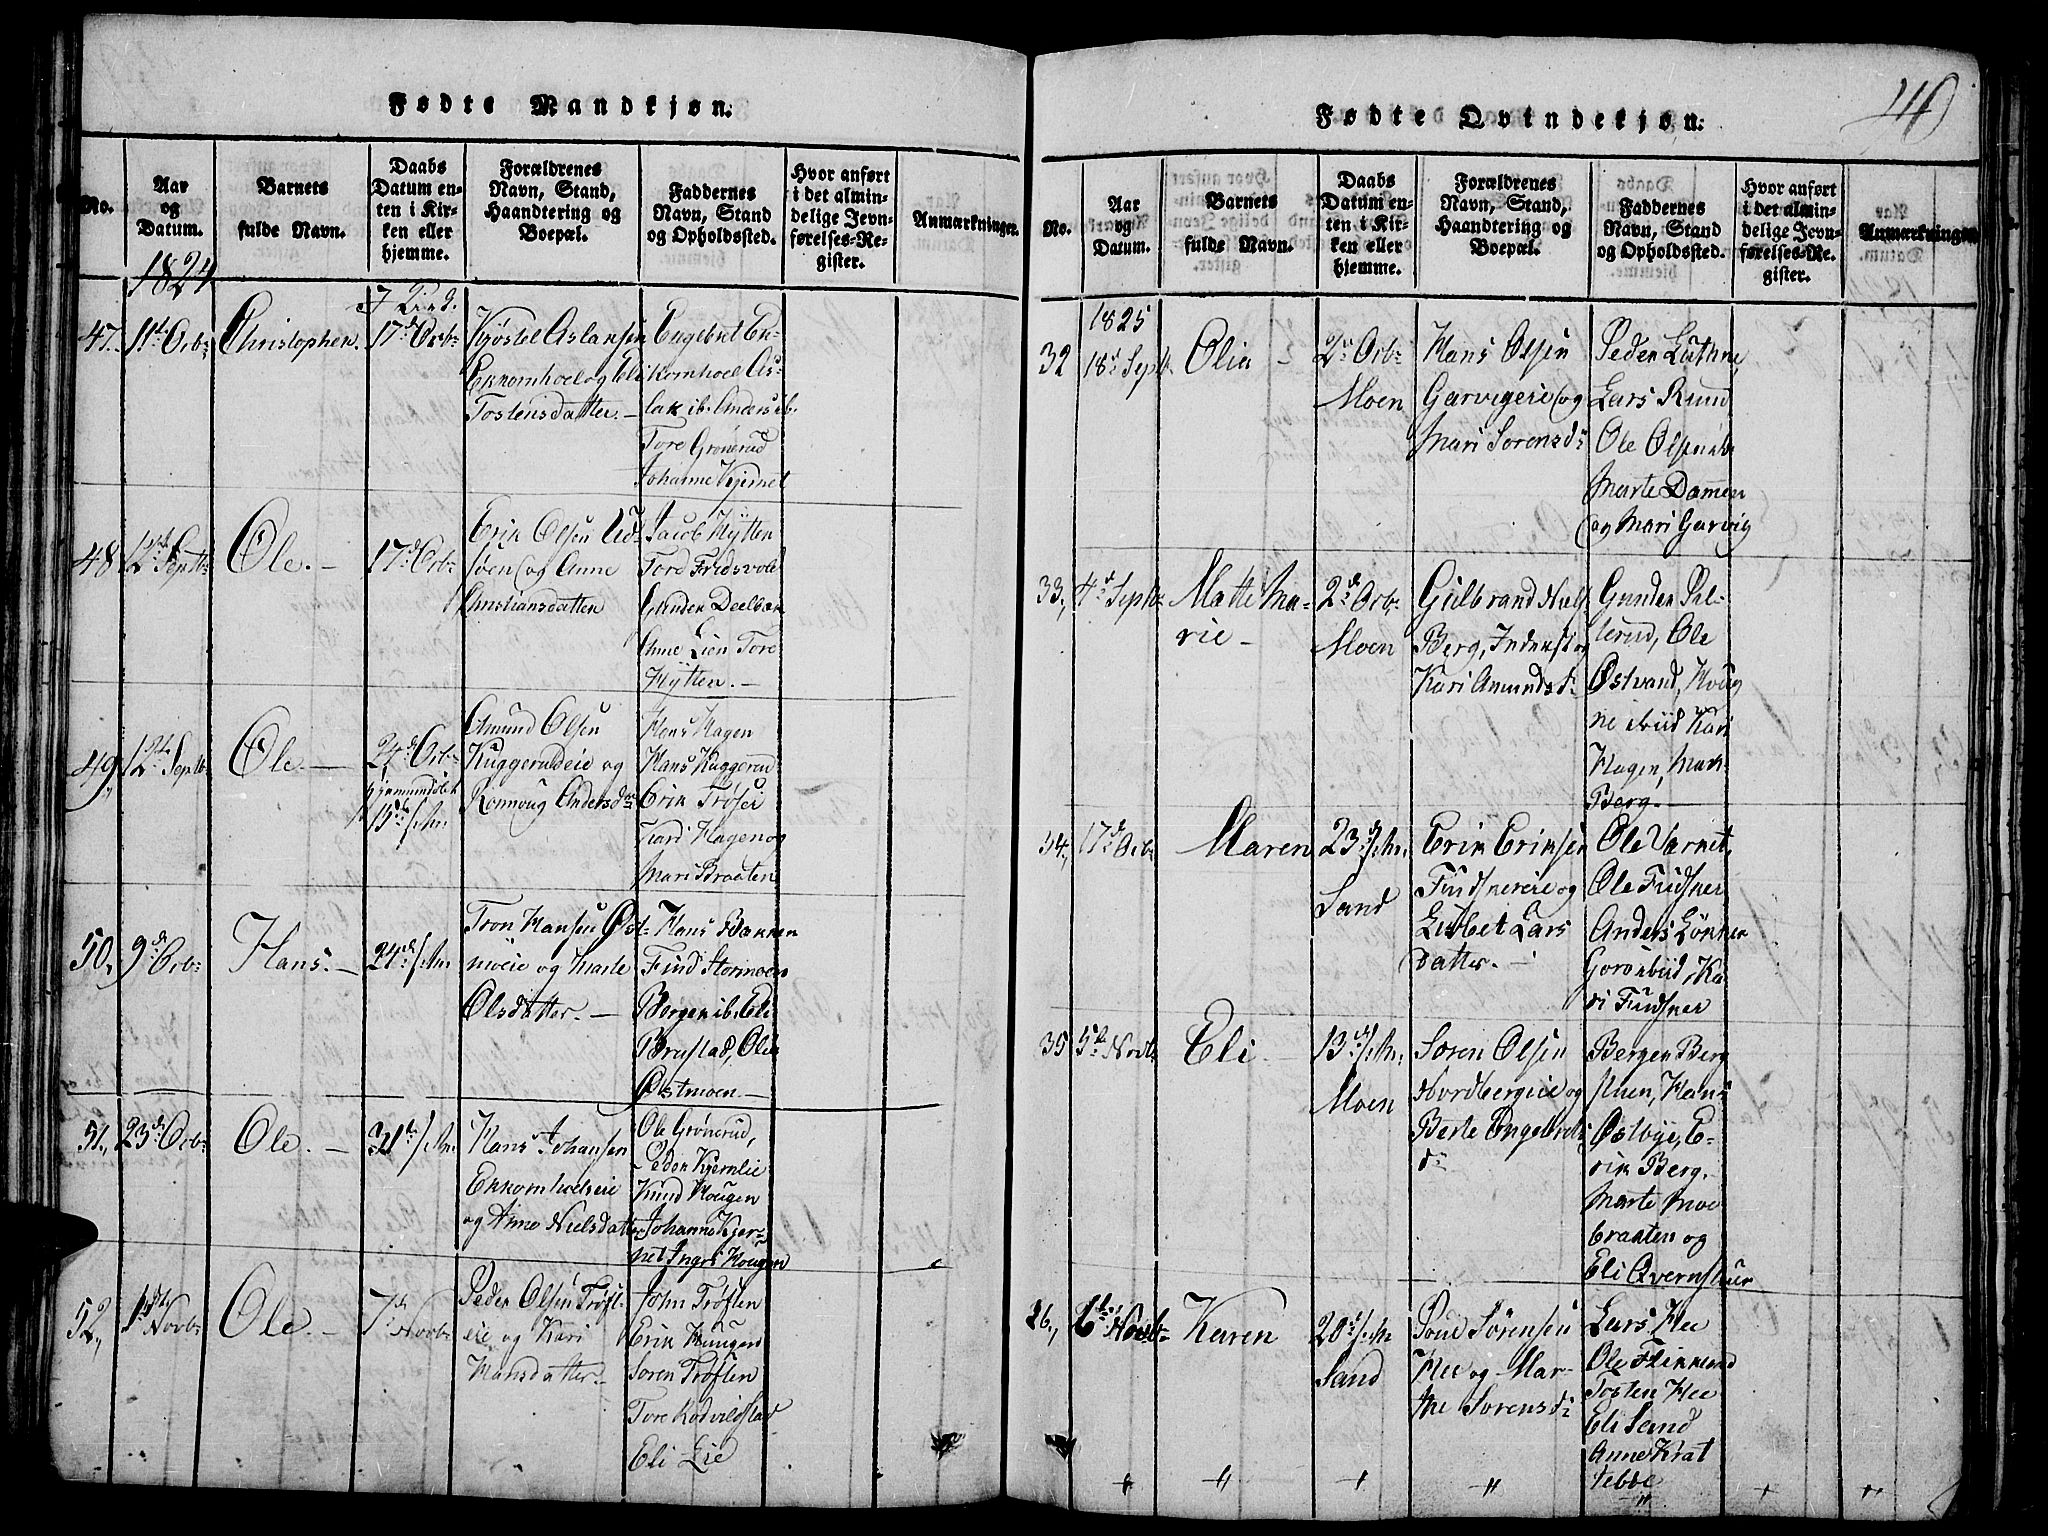 Fødte Mandkjøn.
No.
Aar
og
Datum.
Barnets
fulde Navn.
Daabs
Datum en-
ten i Kir-
ken eller
hjemme.
Forældrenes
Navn, Stand,
Haandtering og
Boepæl.
Faddernes
Navn, Stand
og Opholdssted.
Hvor anført
i det almin-
delige Jevn-
førelses-Re-
gister.
Anmærkninger.
1824
47.
11te Octbr
Christopher.
17de Octbr
Kjøstel Aslansen
Ekkornhoel og Eli
Tostensdatter.
Engebret Ek-
kornhoel As-
lak ib. Anders ib.
Tore Grønerud
Johanne Kjernet
48
12te Septbr
Ole.
17de Octbr
Erik Olsen Ud-
søen og Anne
Christiansdatter
Jacob Hytten
Tore Fredsvol
Gunder Deelbæk
Anne Lien Tore
Hytten.
49.
12te Septbr
Ole.
24de Octbr
15de
Amund Olsen
Kuggerudeie og
Ronnoug Andersdr
Hans Hagen
Hans Kuggerud
Erik Trøser
Kari Hagen og
Mari Braaten
50.
9de Octbr
Hans.
24de
Tron Hansen Øst-
moeie og Marte
Olsdatter.
Hans Bakken
Find Stormoen
Bergen ib. Eli
Brustad, Olia
Østmoen
51.
23de Octbr
Ole.
31te
Hans Johansen
Ekkornhoelseie
og Anne Nielsdatter
Ole Grønerud,
Peder Kjernlie
Knud Hougen
Johanne Kjer-
net Ingri Hougen
52.
1ste Novbr
Ole.
7de Novbr
Peder Olsen Trøft-
eie og Kari
Hansdatter.
John Trøften
Erik Haugen
Soren Trøften
Tore Kodvildstad
Eli Lie
Fødte Qvindekjøn.
No.
Aar
og
Datum.
Barnets
fulde Navn.
Daabs
Datum en-
ten i Kir-
ken eller
hjemme.
Forældrenes
Navn, Stand,
Haandtering og
Boepæl.
Faddernes
Navn, Stand
og Opholdssted.
Hvor anført
i det almin-
delige Jevn-
førelses-Re-
gister.
Anmærkninger
1825
32
18de Septb.
Olia
2den Octbr
Moen
Hans Olsen
Garvigeie og
Mari Sorensdr
Peder Luthne
Lars Rund
Ole Olsen ib.
Marte Dammen
og Mari Garvig
33.
4de Septbr
Matte Ma-
rie
2de Octbr
Moen
Gulbrand Niels.
Berg, Inderst og
Kari Amundsdr
Gunder Pal-
lerud, Ole
Østvand, Houg
Kari
Hagen, Mari
Berg.
34.
17de Octbr
Maren
23de
Sand
Erik Eriksen
Fuidsnereie og
Lisbet Lars
datter.
Ole Varnet,
Ole Fuidsner
Anders Lønner
Goro ibid, Ka-
ri Fuidsner
35
5te Novbr
Eli
13de
Moen
Soren Olsen
Nordbergeie og
Berte Engebrets
dr
Bergen Berg
Hans
Østbye, E-
rik Berg.
Marte Moe
braaten og
Eli Qvernstuer
36.
6te Novbr
Karen
20de
Sand
Poul Sørensen
Hee og Mar-
the Sorensdr
Lars Hee
Ole Flikkerud
Tosten Hee
Eli Sand
Anne Krat
tebøe